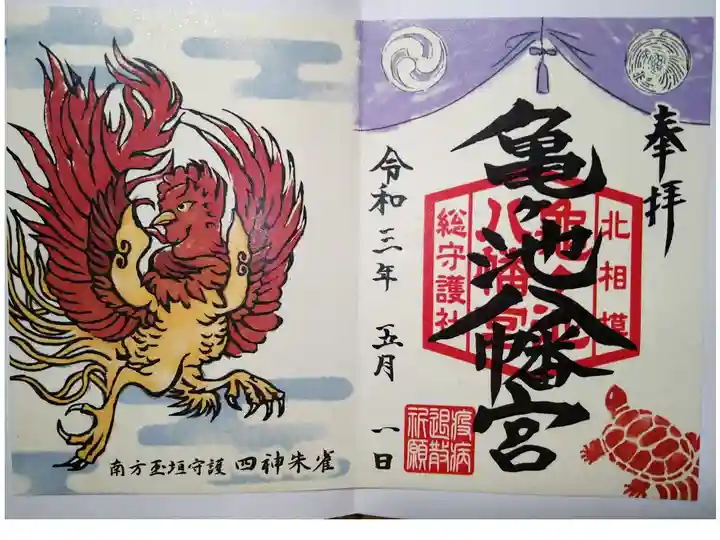 奉拝
亀ヶ池八幡宮
北相模
総守護社
疫病
退散
祈願
令和三年 五月 一日
南方玉垣守護 四神朱雀